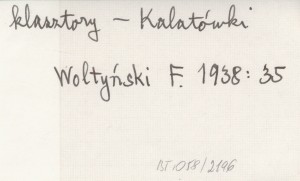 klasztory – Kalatówki
Wołtyński F. 1938: 35
BT:058/2196